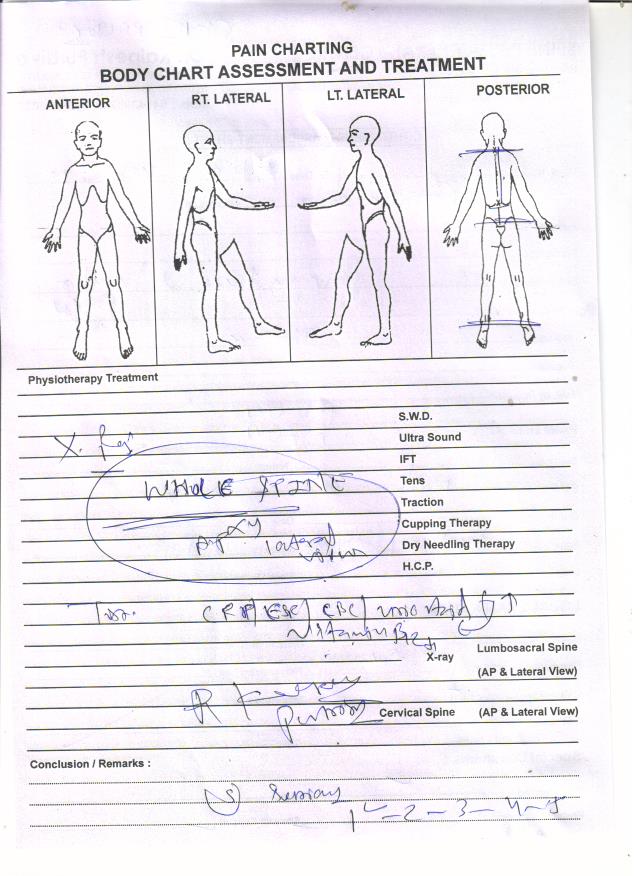 PAIN CHARTING
BODY CHART ASSESSMENT AND TREATMENT
ANTERIOR
RT. LATERAL
LT. LATERAL
POSTERIOR
Physiotherapy Treatment
S.W.D.
X. Ray
Ultra Sound
IFT
WHOLE SPINE
Tens
Traction
Cupping Therapy
lateral
Dry Needling Therapy
H.C.P.
CRP/ESR/CBC/Uric Acid
Vitamin B12
Lumbosacral Spine
X-ray
(AP & Lateral View)
Cervical Spine (AP & Lateral View)
Conclusion / Remarks :
1 - 2 - 3 - 4 - 5